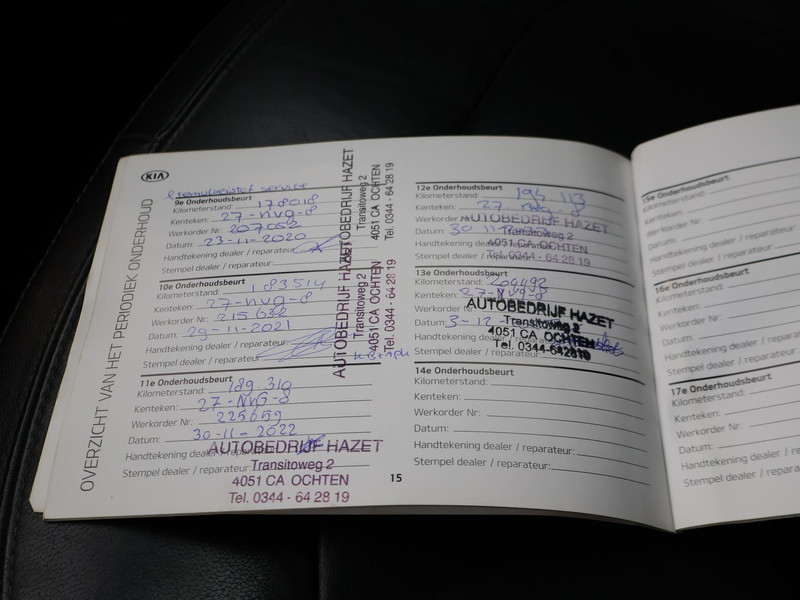 KIA
OVERZICHT VAN HET PERIODIEK ONDERHOUD
remvloeistof service
9e Onderhoudsbeurt
Kilometerstand: 178018
Kenteken: 27-NVG-8
Werkorder Nr: 207062
Datum: 23-11-2020
Handtekening dealer / reparateur:
Stempel dealer / reparateur:
AUTOBEDRIJF HAZET
Transitoweg 2
4051 CA OCHTEN
Tel. 0344 - 64 28 19
10e Onderhoudsbeurt
Kilometerstand: 183514
Kenteken: 27-NVG-8
Werkorder Nr: 215632
Datum: 29-11-2021
Handtekening dealer / reparateur:
Stempel dealer / reparateur:
AUTOBEDRIJF HAZET
Transitoweg 2
4051 CA OCHTEN
Tel. 0344 - 64 28 19
11e Onderhoudsbeurt
Kilometerstand: 189.310
Kenteken: 27-NVG-8
Werkorder Nr: 225659
Datum: 30-11-2022
Handtekening dealer / reparateur:
Stempel dealer / reparateur:
AUTOBEDRIJF HAZET
Transitoweg 2
4051 CA OCHTEN
Tel. 0344 - 64 28 19
15
12e Onderhoudsbeurt
Kilometerstand: 194 113
Kenteken: 27-NVG-8
Werkorder
Datum: 30 11
Handtekening dealer / reparateur:
Stempel dealer / reparateur:
AUTOBEDRIJF HAZET
Transitoweg 2
4051 CA OCHTEN
Tel. 0344 - 64 28 19
13e Onderhoudsbeurt
Kilometerstand: 204492
Kenteken: 27-NVG-8
Werkorder Nr:
Datum: 3-12
Handtekening dealer
Stempel dealer / reparateur:
AUTOBEDRIJF HAZET
Transitoweg 2
4051 CA OCHTEN
Tel. 0344-642819
14e Onderhoudsbeurt
Kilometerstand:
Kenteken:
Werkorder Nr:
Datum:
Handtekening dealer / reparateur:
Stempel dealer / reparateur:
15e Onderhoudsbeurt
Kilometerstand:
Kenteken:
Werkorder Nr:
Datum:
Handtekening dealer / reparateur:
Stempel dealer / reparateur:
16e Onderhoudsbeurt
Kilometerstand:
Kenteken:
Werkorder Nr:
Datum:
Handtekening dealer / reparateur:
Stempel dealer / reparateur:
17e Onderhoudsbeurt
Kilometerstand:
Kenteken:
Werkorder Nr:
Datum:
Handtekening dealer / reparateur
Stempel dealer / reparateur